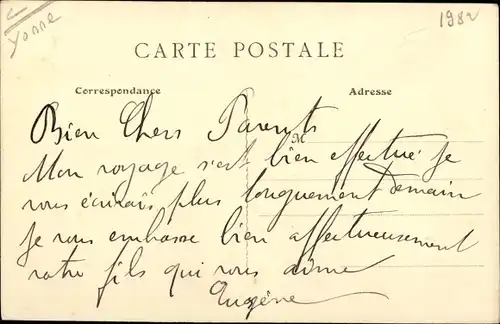 Yonne
1982
CARTE POSTALE
Correspondance
Adresse
Bien Chers Parents
M
Mon voyage s'est bien effectué je
vous écrirais plus longuement demain
je vous embrasse bien affectueusement
votre fils qui vous aime
Eugène